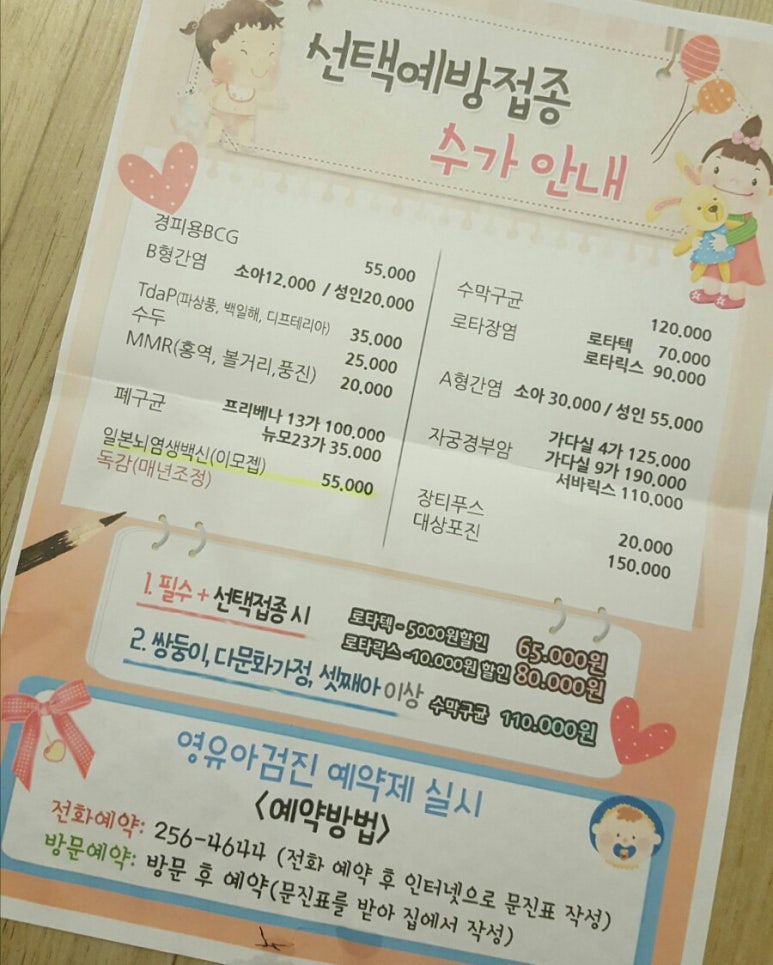 선택예방접종
수가 안내
경피용BCG 55.000
B형간염 소아12.000 / 성인20,000
TdaP(파상풍, 백일해, 디프테리아) 35.000
수두 25.000
MMR(홍역, 볼거리,풍진) 20.000
폐구균 프리베나 13가 100.000
뉴모23가 35.000
일본뇌염생백신(이모젭) 55.000
독감(매년조정)
수막구균 120.000
로타장염 로타텍 70.000
로타릭스 90.000
A형간염 소아 30.000 / 성인 55.000
자궁경부암 가다실 4가 125.000
가다실 9가 190.000
서바릭스 110.000
장티푸스 20.000
대상포진 150.000
1. 필수 + 선택접종 시
2. 쌍둥이, 다문화가정, 셋째아 이상
로타텍 - 5000원할인 65.000원
로타릭스 -10.000원 할인 80.000원
수막구균 110.000원
영유아검진 예약제 실시
<예약방법>
전화예약: 256-4644 (전화 예약 후 인터넷으로 문진표 작성)
방문예약: 방문 후 예약(문진표를 받아 집에서 작성)